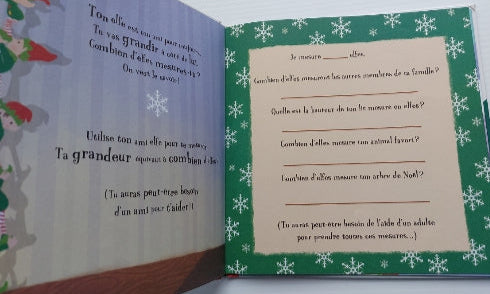 Ton elfe est ton ami pour toujours.
Tu vas grandir à côté de lui.
Combien d'elfes mesures-tu ?
On veut le savoir !
Utilise ton ami elfe pour te mesurer.
Ta grandeur équivaut à combien d'elfes
(Tu auras peut-être besoin
d'un ami pour t'aider !)
Je mesure ______ elfes.
Combien d'elfes mesurent les autres membres de ta famille ?
Quelle est la hauteur de ton lit mesuré en elfes ?
Combien d'elfes mesure ton animal favori ?
Combien d'elfes mesure ton arbre de Noël ?
(Tu auras peut-être besoin de l'aide d'un adulte
pour prendre toutes ces mesures...)